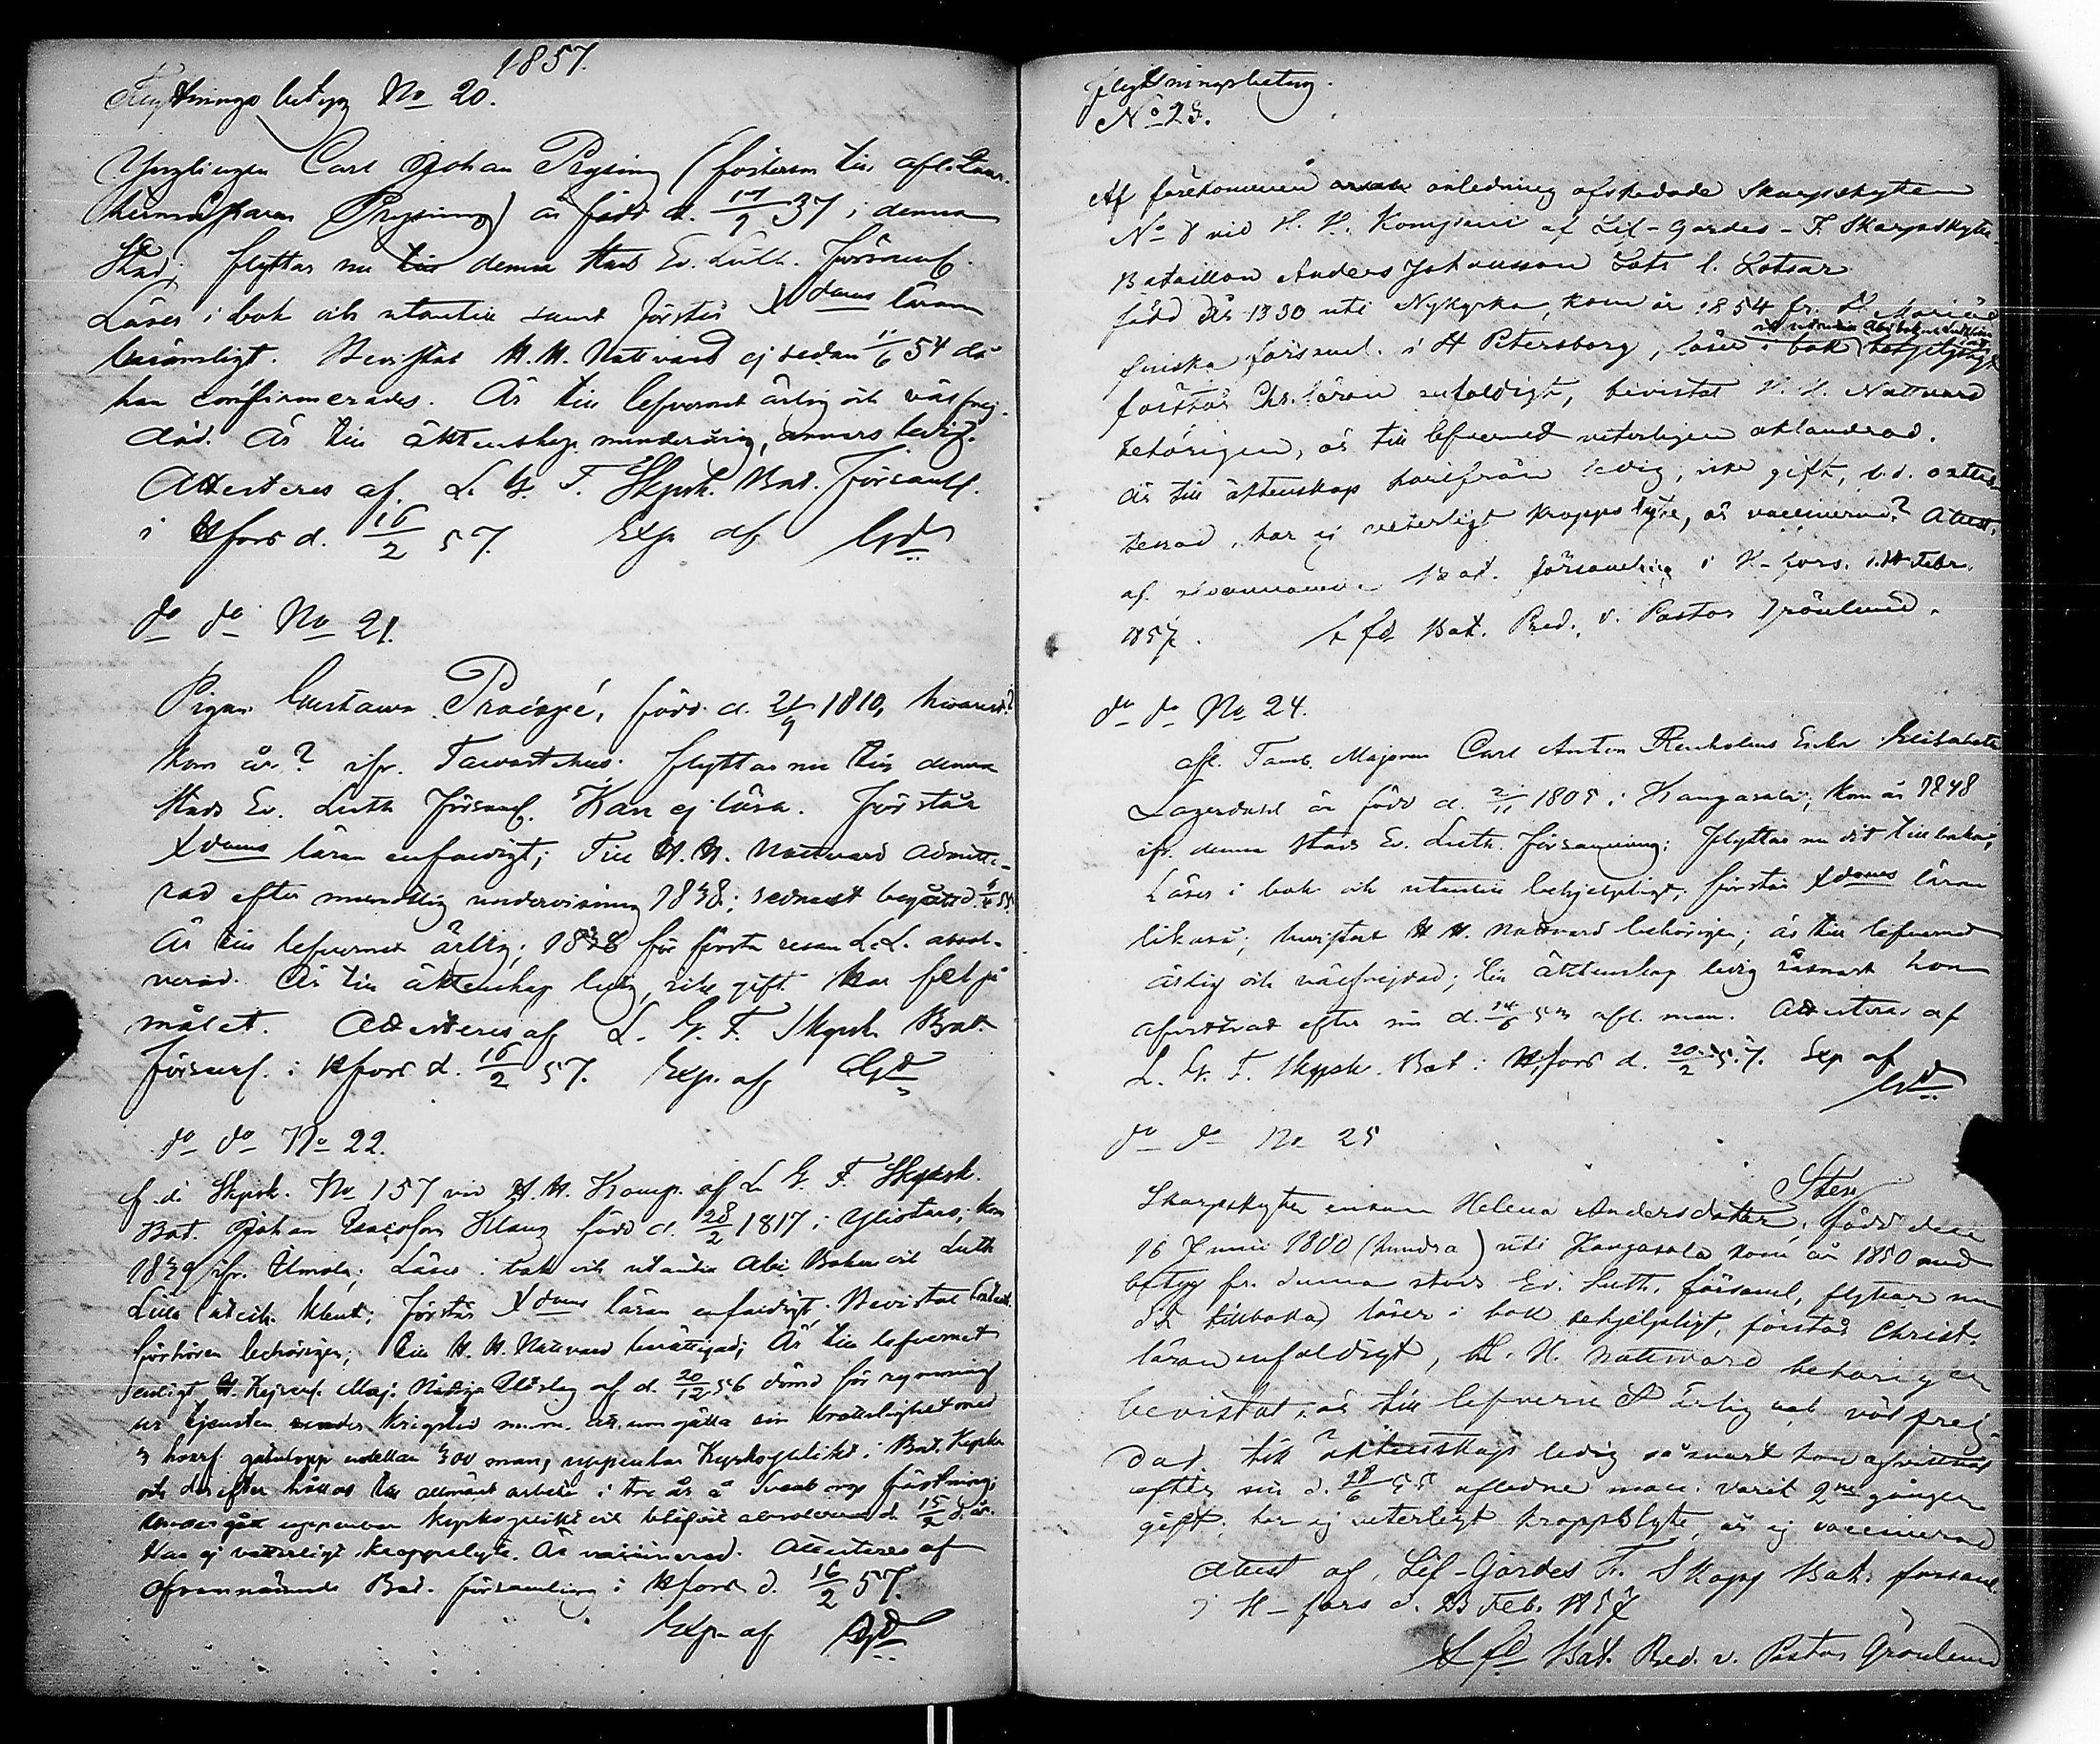 1857.
Flyttnings betyg No 20.
Ynglingen Carl Johan Prysing (fosterson till afl.
Prysing) är född d. 17/9 37 i denna
Stad; flyttar nu till denna stads Ev. Luth. Församl.
Läser i bok och utantill samt förstår Xdoms läran
försvarligt. Bevistat H. H. Nattvard ej sedan 11/6 54 då
han confirmerades. Är till lefvernet ärlig och välfrej-
dad. Är till äktenskap minderårig, annars ledig.
Attesteras af L. G. F. Skpsk. Bat. Församl.
i Hfors d. 16/2 57. Exp. af
do do No 21.
Pigan Gustava Procopé, född d. 21/9 1810, hvarest?
kom år? ifr. Tavastehus. flyttar nu till denna
Stads Ev. Luth Församl. Kan ej läsa. Förstår
Xdoms läran enfaldigt; Till H. H. Nattvard admitte-
rad efter muntlig undervisning 1838; sednast begått d.
Är till lefvernet ärlig; för första resan L. L. absol-
verad. Är till äktenskap ledig, icke gift. Har fel på
målet. Attesteras af L. G. F. Skpsk. Bat.
Församl. i Hfors d. 16/2 57. Exp. af
do do No 22.
f. d. Skpsk. No 157 vid H. H. Komp. af L. G. F. Skpsk.
Bat. Johan Klang född d. 28/2 1817 i Ylistaro; kom
ifr. Läser i bok och utantill Abc Boken och Luth
Lilla Catech. förstår Xdoms läran enfaldigt. Bevistat
förhören behörigen; till H. H. Nattvard berättigad; Är till lefvernet
enligt H. Kejserl. Maj. Nådiga Utslag af d. 20/12 56 dömd för rymning
ur tjensten under krigstid m.m. att umgälla sin brottslighet med
3 hvarf gatulopp emellan 300 man, uppenbar Kyrkoplikt i Bat. Kyrka
och derefter hållas till allmänt arbete i tre år å Sveaborgs fästning;
undergått uppenbar kyrkoplikt och blifvit absolverad d. 15/2 d. år.
Har ej vetterligt kroppslyte. Är vaccinerad. Attesteras af
ofvannämnde Bat. församling i Hfors d. 16/2 57.
Exp. af
Flyttningsbetyg.
No 23.
Af förekommen anledning afskedade Skarpskytten
No 8 vid H. H. Kompani af Lif-Gardes-F. Skarpskytte
Bataillon Anders Johansson Lots l. Lotsar
född år 1830 uti Nykyrka, kom år 1854 fr. St Mariæ
finska församl. i St Petersborg, läser i bok
förstår Chr. läran enfaldigt, bevistat H. H. Nattvard
behörigen, är till lefvernet veterligen oklandrad.
är till äktenskap härifrån ledig, icke gift,
har ej veterligt kroppslyte, är vaccinerad? Attest.
af ofvannämnde Bat. församling i H-fors. Febr.
1857. Bat. Pred. v. Pastor Grönlund.
do do No 24.
afl. Tamb. Majoren Carl Anton Renholms Enka Elisabeth
Lagerdahl är född d. 2/11 1805 i Kangasala; kom år 1848
ifr. denna Stads Ev. Luth. Församling; flyttar nu dit tillbaka;
Läser i bok och utantill behjelpligt; förstår Xdoms läran
likaså; bevistat H. H. Nattvard behörigen; är till lefvernet
ärlig och välfrejdad; till äktenskap ledig såsnart hon
afvittrat efter sin d. afl. man. Attesteras af
L. G. F. Skpsk. Bat. i Hfors d. 20/2 57. Exp af
do do No 25
Skarpskytte enkan Helena Andersdotter Sten, född den
16 Junii 1800 (hundra) uti Kangasala kom år 1850 med
betyg fr. denna stads Ev. Luth. församl, flyttar nu
dit tillbaka, läser i bok behjelpligt, förstår Christ.
läran enfaldigt, H. H. nattvard behörigen
bevistat, är till lefvernet ärlig och välfrej-
dad. till äktenskap ledig såsnart hon afvittrat
efter sin d. 28/6 55 aflidne man. varit 2ne gånger
gift; har ej veterligt kroppslyte, är ej vaccinerad
attest af Lif-Gardes F. Skapsk Bat. församl
i H-fors d. 23 Feb. 1857
Bat. Pred. v. Pastor Grönlund